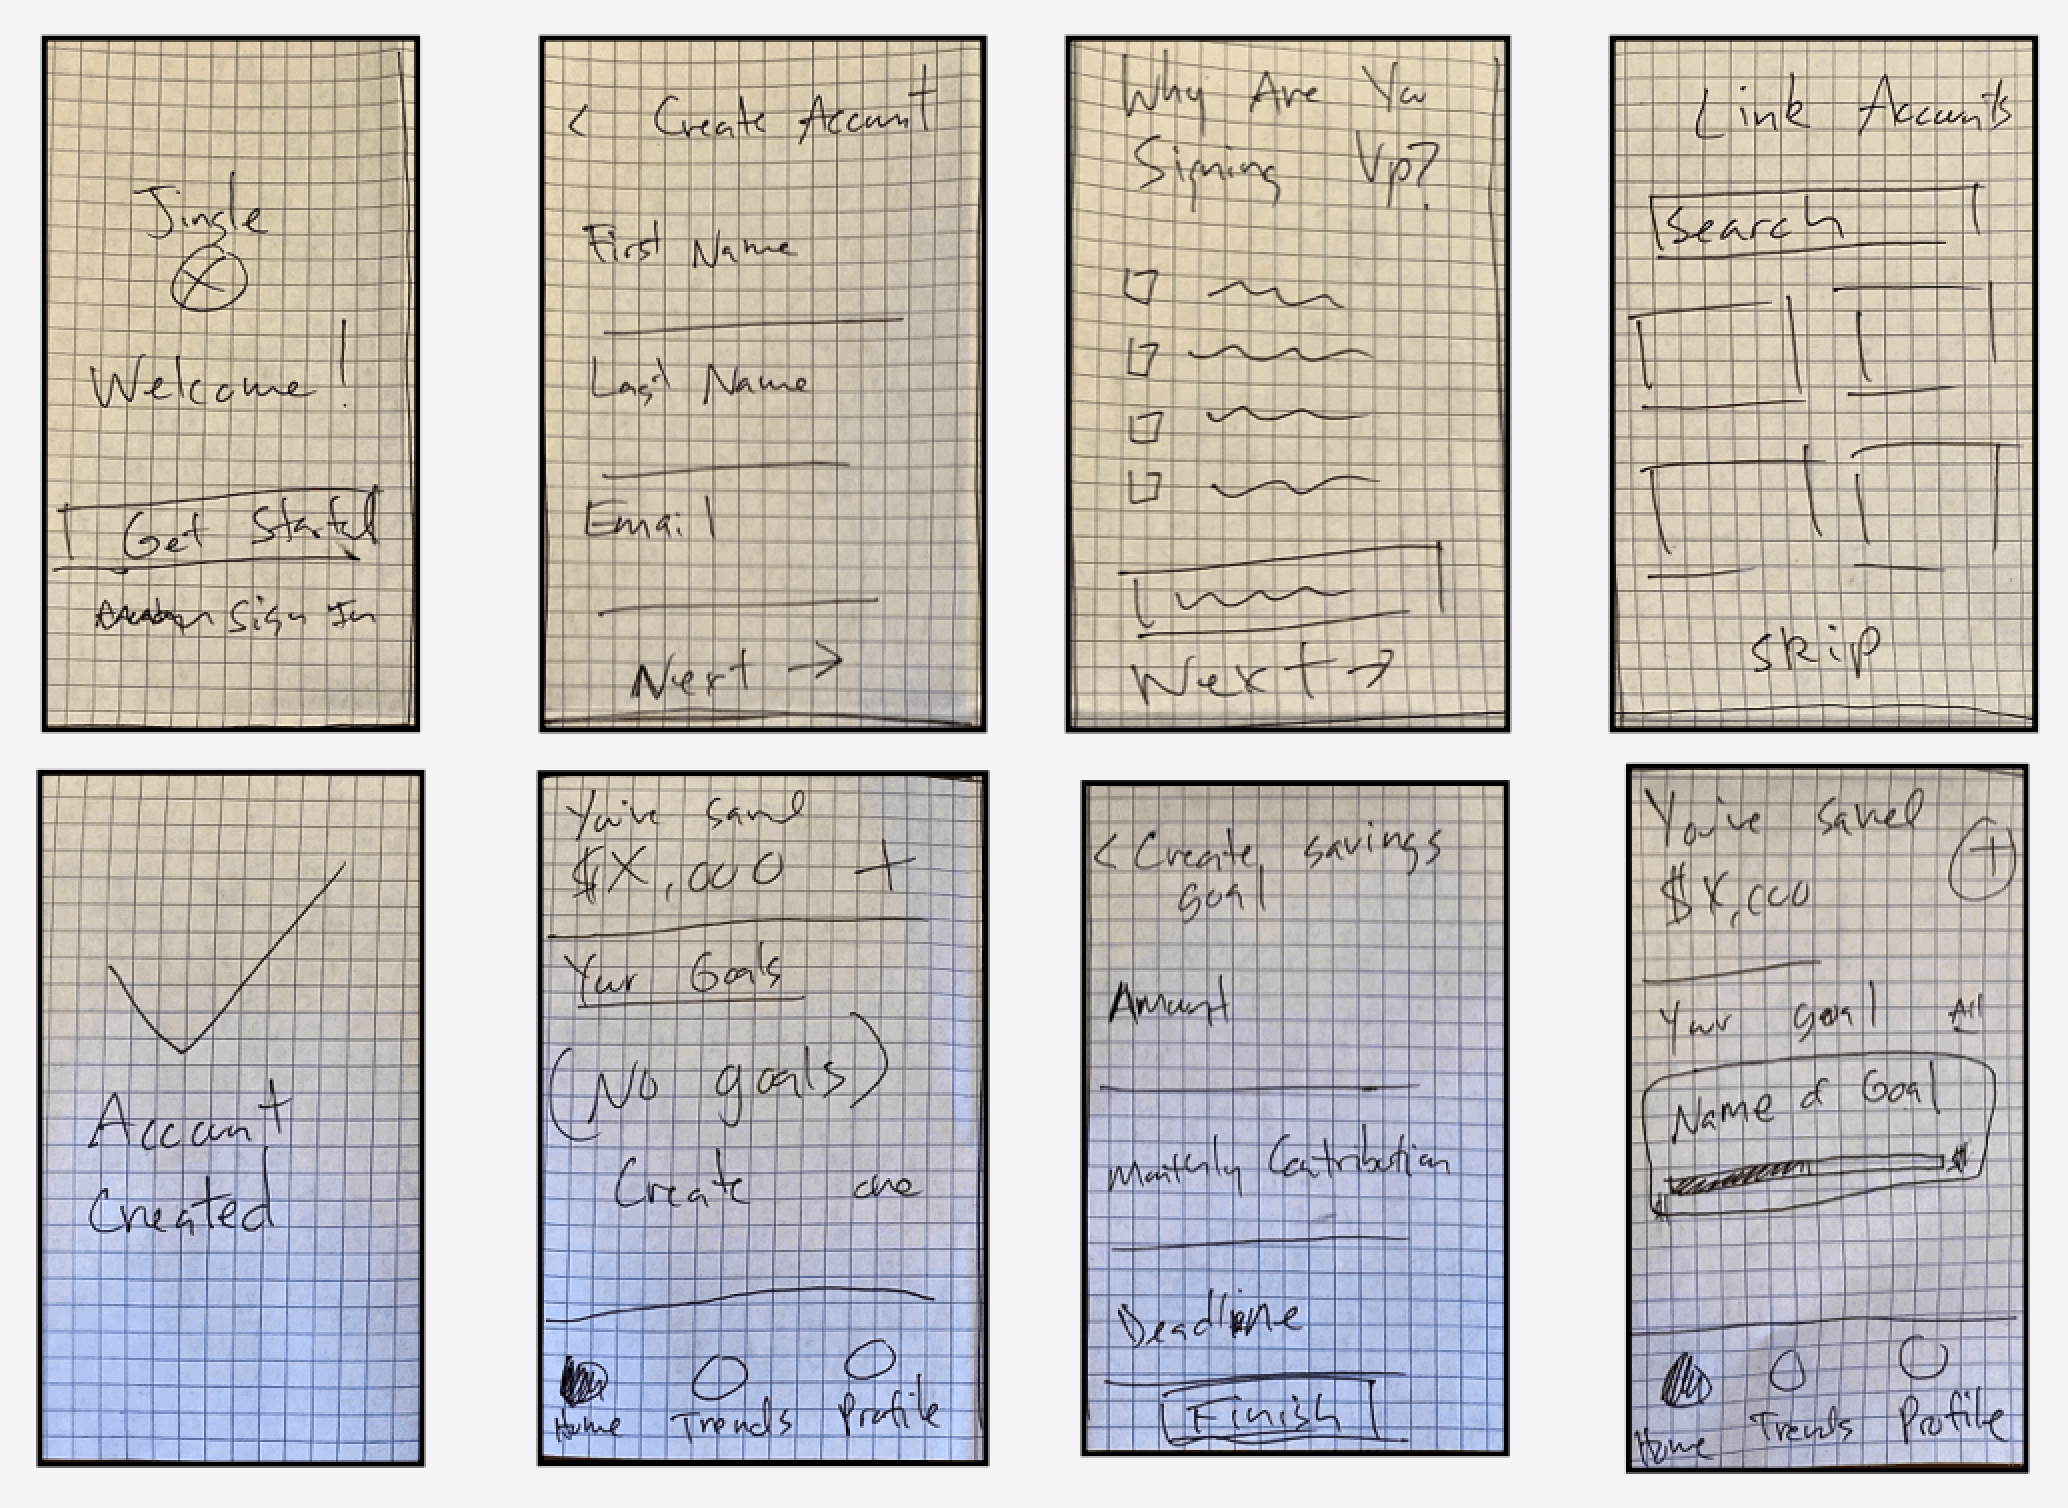 Jingle
Welcome!
Get Started
Sign In
< Create Account
First Name
Last Name
Email
Next →
Why Are You
Signing Up?
Next →
Link Accounts
Search
skip
Account
Created
You've saved
$X,000 +
Your Goals
(No goals)
Create one
Home Trends Profile
< Create savings
goal
Amount
Monthly Contribution
Deadline
Finish
You've saved
$X,000 +
Your goal All
Name of Goal
$ $
Home Trends Profile